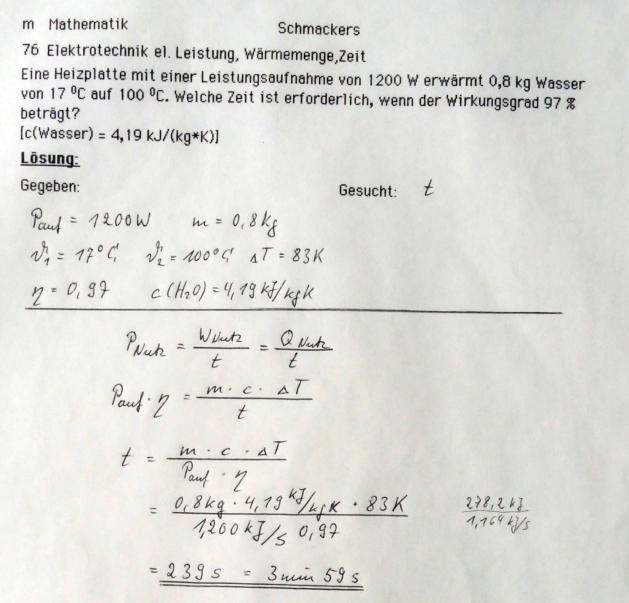 m Mathematik Schmackers
76 Elektrotechnik el. Leistung, Wärmemenge,Zeit
Eine Heizplatte mit einer Leistungsaufnahme von 1200 W erwärmt 0,8 kg Wasser
von 17 ⁰C auf 100 ⁰C. Welche Zeit ist erforderlich, wenn der Wirkungsgrad 97 %
beträgt?
[c(Wasser) = 4,19 kJ/(kg*K)]
Lösung:
Gegeben: Gesucht: t
P_auf = 1200W m = 0,8kg
ϑ₁ = 17°C ϑ₂ = 100°C ΔT = 83K
η = 0,97 c(H₂O) = 4,19 kJ/kgK
P_Nutz = W_Nutz / t = Q_Nutz / t
P_auf · η = m · c · ΔT / t
t = m · c · ΔT / P_auf · η
= 0,8kg · 4,19 kJ/kgK · 83K / 1,200 kJ/s 0,97 278,2 kJ / 1,164 kJ/s
= 239 s = 3 min 59 s